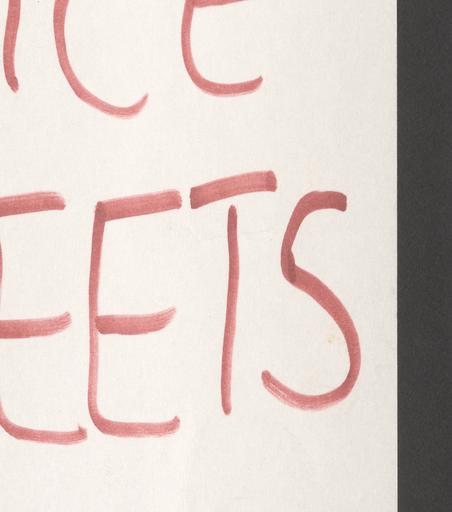 ICE
EETS